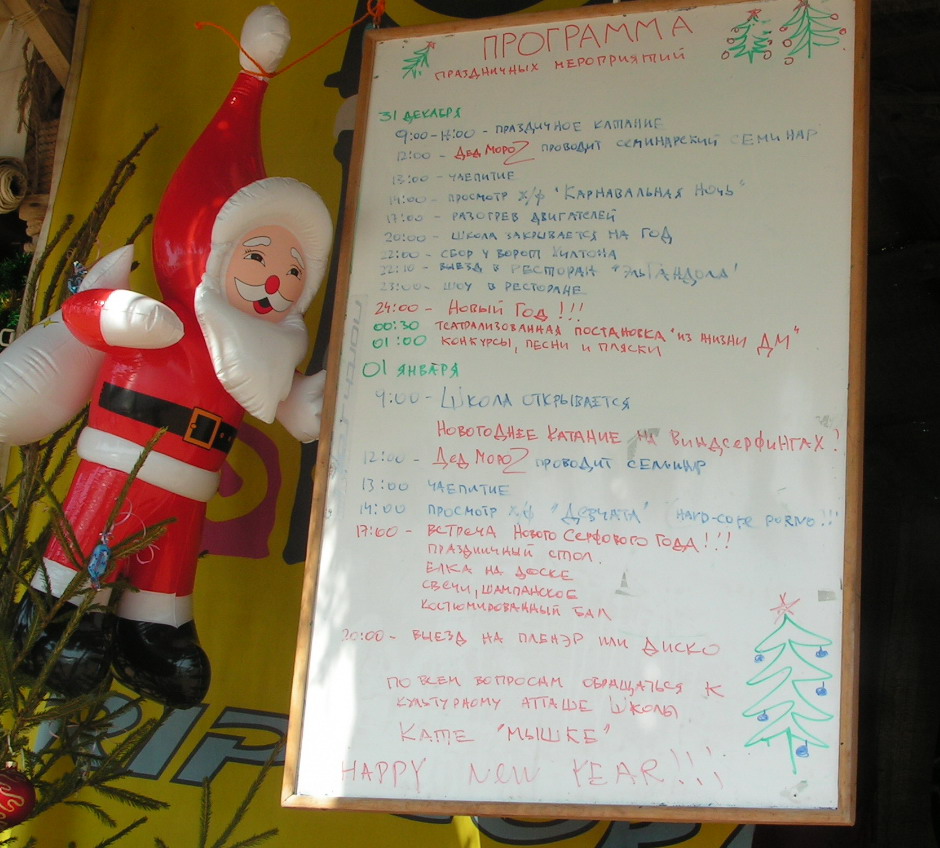 ПРОГРАММА
ПРАЗДНИЧНЫХ МЕРОПРИЯТИЙ
31 ДЕКАБРЯ
9:00-14:00 - ПРАЗДИЧНОЕ КАТАНИЕ
12:00 - ДЕД МОРОZ ПРОВОДИТ СЕМИНАРСКИЙ СЕМИНАР
13:00 - ЧАЕПИТИЕ
14:00 - ПРОСМОТР Х/Ф "КАРНАВАЛЬНАЯ НОЧЬ"
17:00 - РАЗОГРЕВ ДВИГАТЕЛЕЙ
20:00 - ШКОЛА ЗАКРЫВАЕТСЯ НА ГОД
22:00 - СБОР У ВОРОТ ХИЛТОНА
22:10 - ВЫЕЗД В РЕСТОРАН "ЭЛЬГАНДОЛА"
23:00 - ШОУ В РЕСТОРАНЕ
24:00 - НОВЫЙ ГОД!!!
00:30 ТЕАТРАЛИЗОВАННАЯ ПОСТАНОВКА "ИЗ ЖИЗНИ ДМ"
01:00 КОНКУРСЫ, ПЕСНИ И ПЛЯСКИ
01 ЯНВАРЯ
9:00 - ШКОЛА ОТКРЫВАЕТСЯ
НОВОГОДНЕЕ КАТАНИЕ НА ВИНДСЕРФИНГАХ!
12:00 - ДЕД МОРОZ ПРОВОДИТ СЕМИНАР
13:00 ЧАЕПИТИЕ
14:00 ПРОСМОТР Х/Ф "ДЕВЧАТА" HARD-CORE PORNO!!!
17:00 - ВСТРЕЧА НОВОГО СЕРФОВОГО ГОДА!!!
ПРАЗДНИЧНЫЙ СТОЛ.
ЕЛКА НА ДОСКЕ
СВЕЧИ, ШАМПАНСКОЕ
КОСТЮМИРОВАННЫЙ БАЛ
20:00 - ВЫЕЗД НА ПЛЕНЭР ИЛИ ДИСКО
ПО ВСЕМ ВОПРОСАМ ОБРАЩАТЬСЯ К
КУЛЬТУРНОМУ АТТАШЕ ШКОЛЫ
КАТЕ "МЫШКЕ"
HAPPY NEW YEAR!!!
RIP